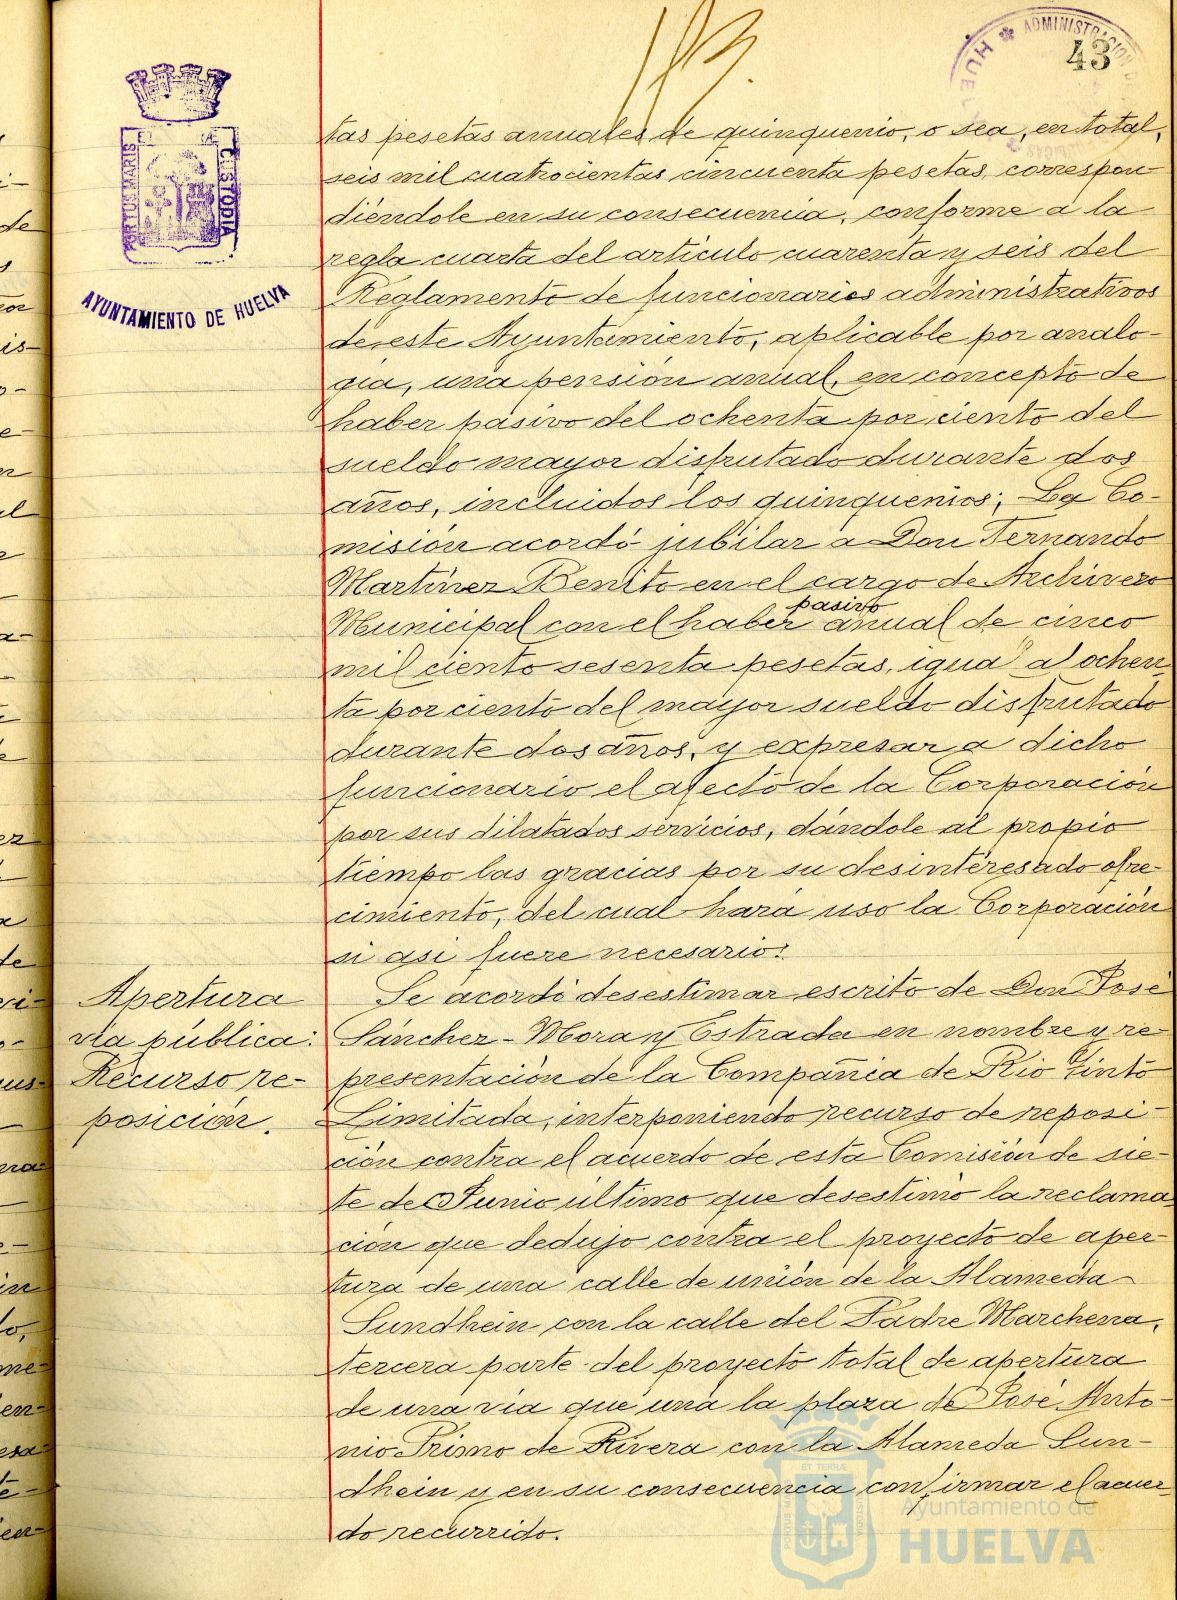 113.
43
ADMINISTRACION
HUEL
PORTUS MARIS
ET
CUSTODIA
AYUNTAMIENTO DE HUELVA
tas pesetas anuales de quinquenio, o sea, en total,
seis mil cuatrocientas cincuenta pesetas, correspon-
diéndole en su consecuencia, conforme a la
regla cuarta del artículo cuarenta y seis del
Reglamento de funcionarios administrativos
de este Ayuntamiento, aplicable por analo-
gía, una pensión anual, en concepto de
haber pasivo del ochenta por ciento del
sueldo mayor disfrutado durante dos
años, incluidos los quinquenios; La Co-
misión acordó jubilar a Don Fernando
Martínez Benito en el cargo de Archivero
Municipal con el haber pasivo anual de cinco
mil ciento sesenta pesetas, igual al ochen-
ta por ciento del mayor sueldo disfrutado
durante dos años, y expresar a dicho
funcionario el afecto de la Corporación
por sus dilatados servicios, dándole al propio
tiempo las gracias por su desinteresado ofre-
cimiento, del cual hará uso la Corporación
si así fuere necesario.
Apertura
vía pública:
Recurso re-
posición.
Se acordó desestimar escrito de Don José
Sánchez-Mora y Estrada en nombre y re-
presentación de la Compañía de Río Tinto
Limitada, interponiendo recurso de reposi-
ción contra el acuerdo de esta Comisión de sie-
te de Junio último que desestimó la reclama-
ción que dedujo contra el proyecto de aper-
tura de una calle de unión de la Alameda
Sundhein con la calle del Padre Marchena,
tercera parte del proyecto total de apertura
de una vía que una la plaza de José Anto-
nio Primo de Rivera con la Alameda Sun-
dhein y en su consecuencia confirmar el acuer-
do recurrido.
Ayuntamiento de
HUELVA